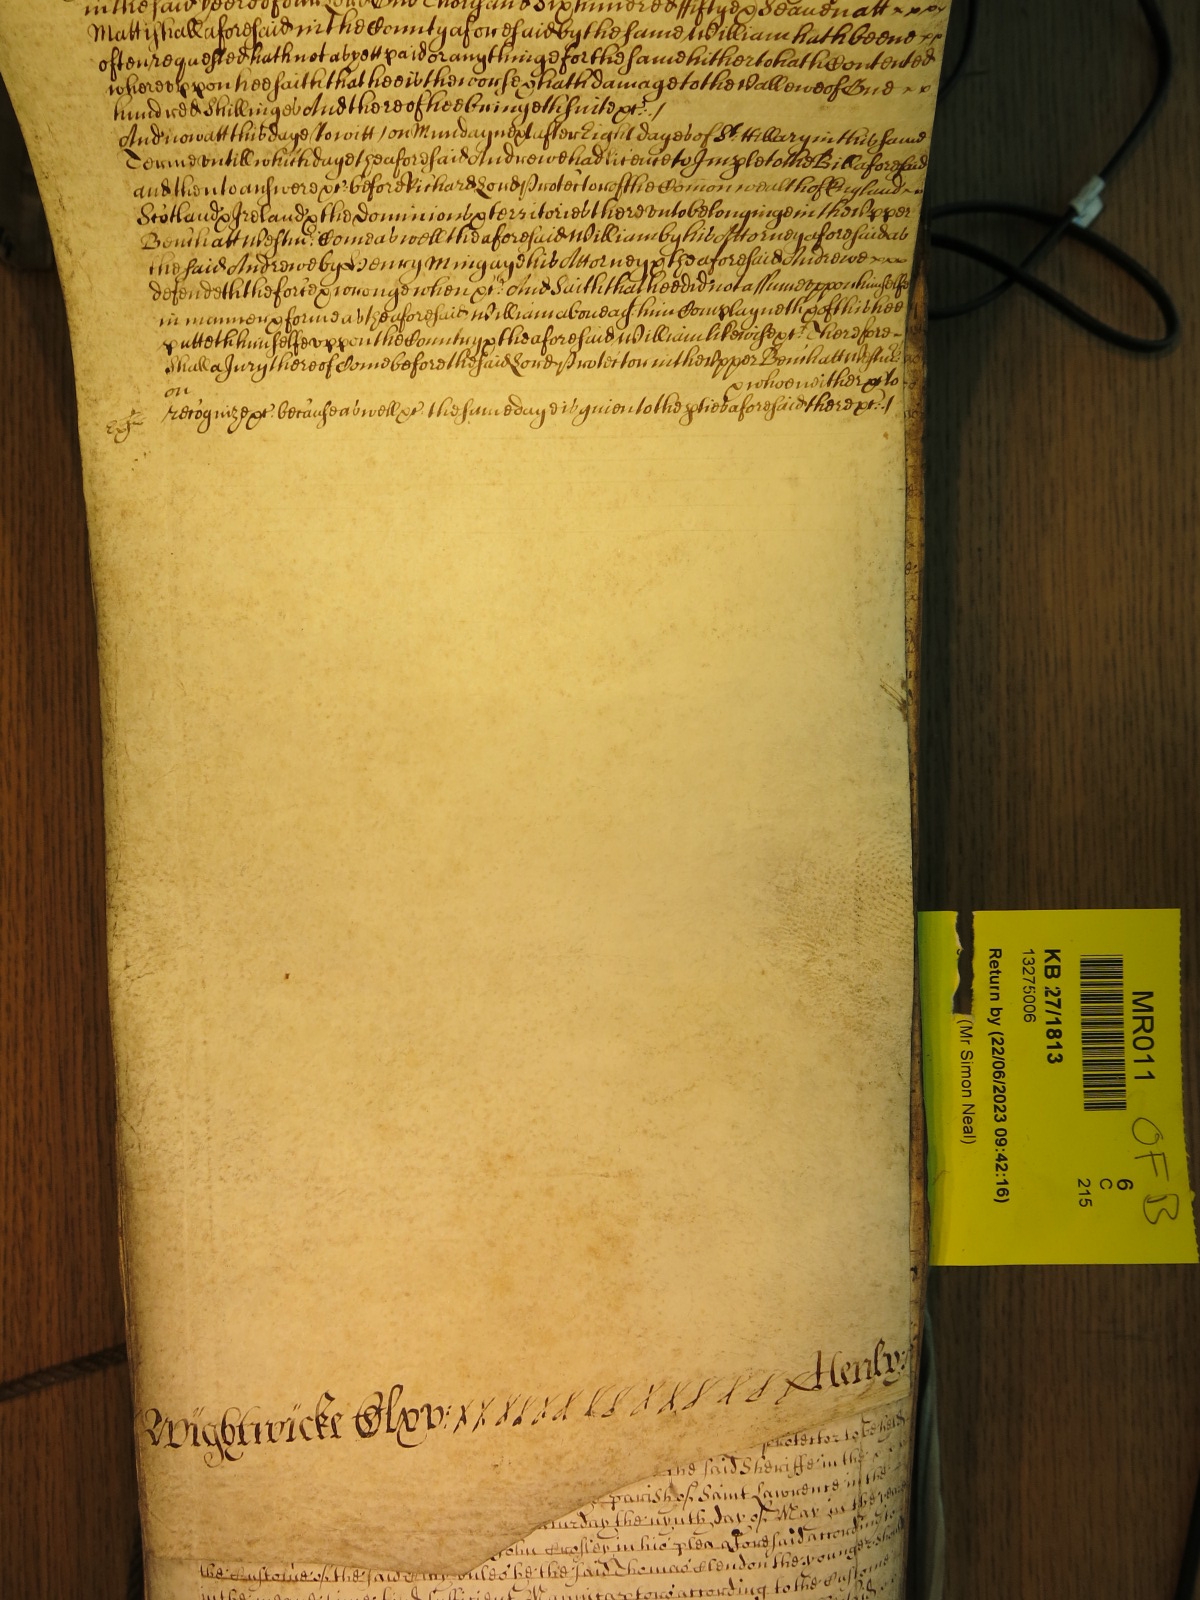 in the said yeere of our Lord One Thousand Six hundred ffiftye & Seaven att
Mattishall aforesaid in the County aforesaid by the same William hath beene
often requested hath not as yett paid or any thinge for the same hitherto hath Contented
whereuppon hee saith that hee is the worse & hath damage to the Vallewe of One
hundred Shillinges And thereof hee bringeth suite &c. /
And now att this daye (to witt) on Munday next after Eight dayes of St. Hillary in this same
Terme untill which daye the aforesaid Andrewe had licence to Imple to the Bill aforesaid
and then to answere &c. before Richard Lord Protector of the Common wealth of England
Scotland & Ireland & the Dominions & territories thereunto belonginge in the Upper
Bench att Westmr. Come as well the aforesaid William by his Attorney aforesaid as
the said Andrewe by Henry Mingaye his Attorney & the aforesaid Andrewe
defendeth the force & wronge when &c. And Saith that hee did not assume uppon himselfe
in manner & forme as the aforesaid William above ag. him Complayneth & of this hee
putteth himselfe uppon the Country & the aforesaid William likewise &c. Therefore
Shall a Jury thereof Come before the said Lord Protector in the Upper Bench att Westmr.
on & whoe neither &c. to
recognize &c. because as well &c. the same daye is given to the pties aforesaid there &c. /
Wightwicke Clxv: Henly:
protector to be held
the said Sheriffe in the
parish of Saint Lawrence in the
Saturday the nynth day of May in the yeare
John Crosier in his plea aforesaid according to
the Custome of the said rules be the said Thomas Clendon the younger should
sufficient Manucaptors according to the Custome
MR011
OF B
KB 27/1813
13275006
6
C
215
Return by (22/06/2023 09:42:16)
(Mr Simon Neal)